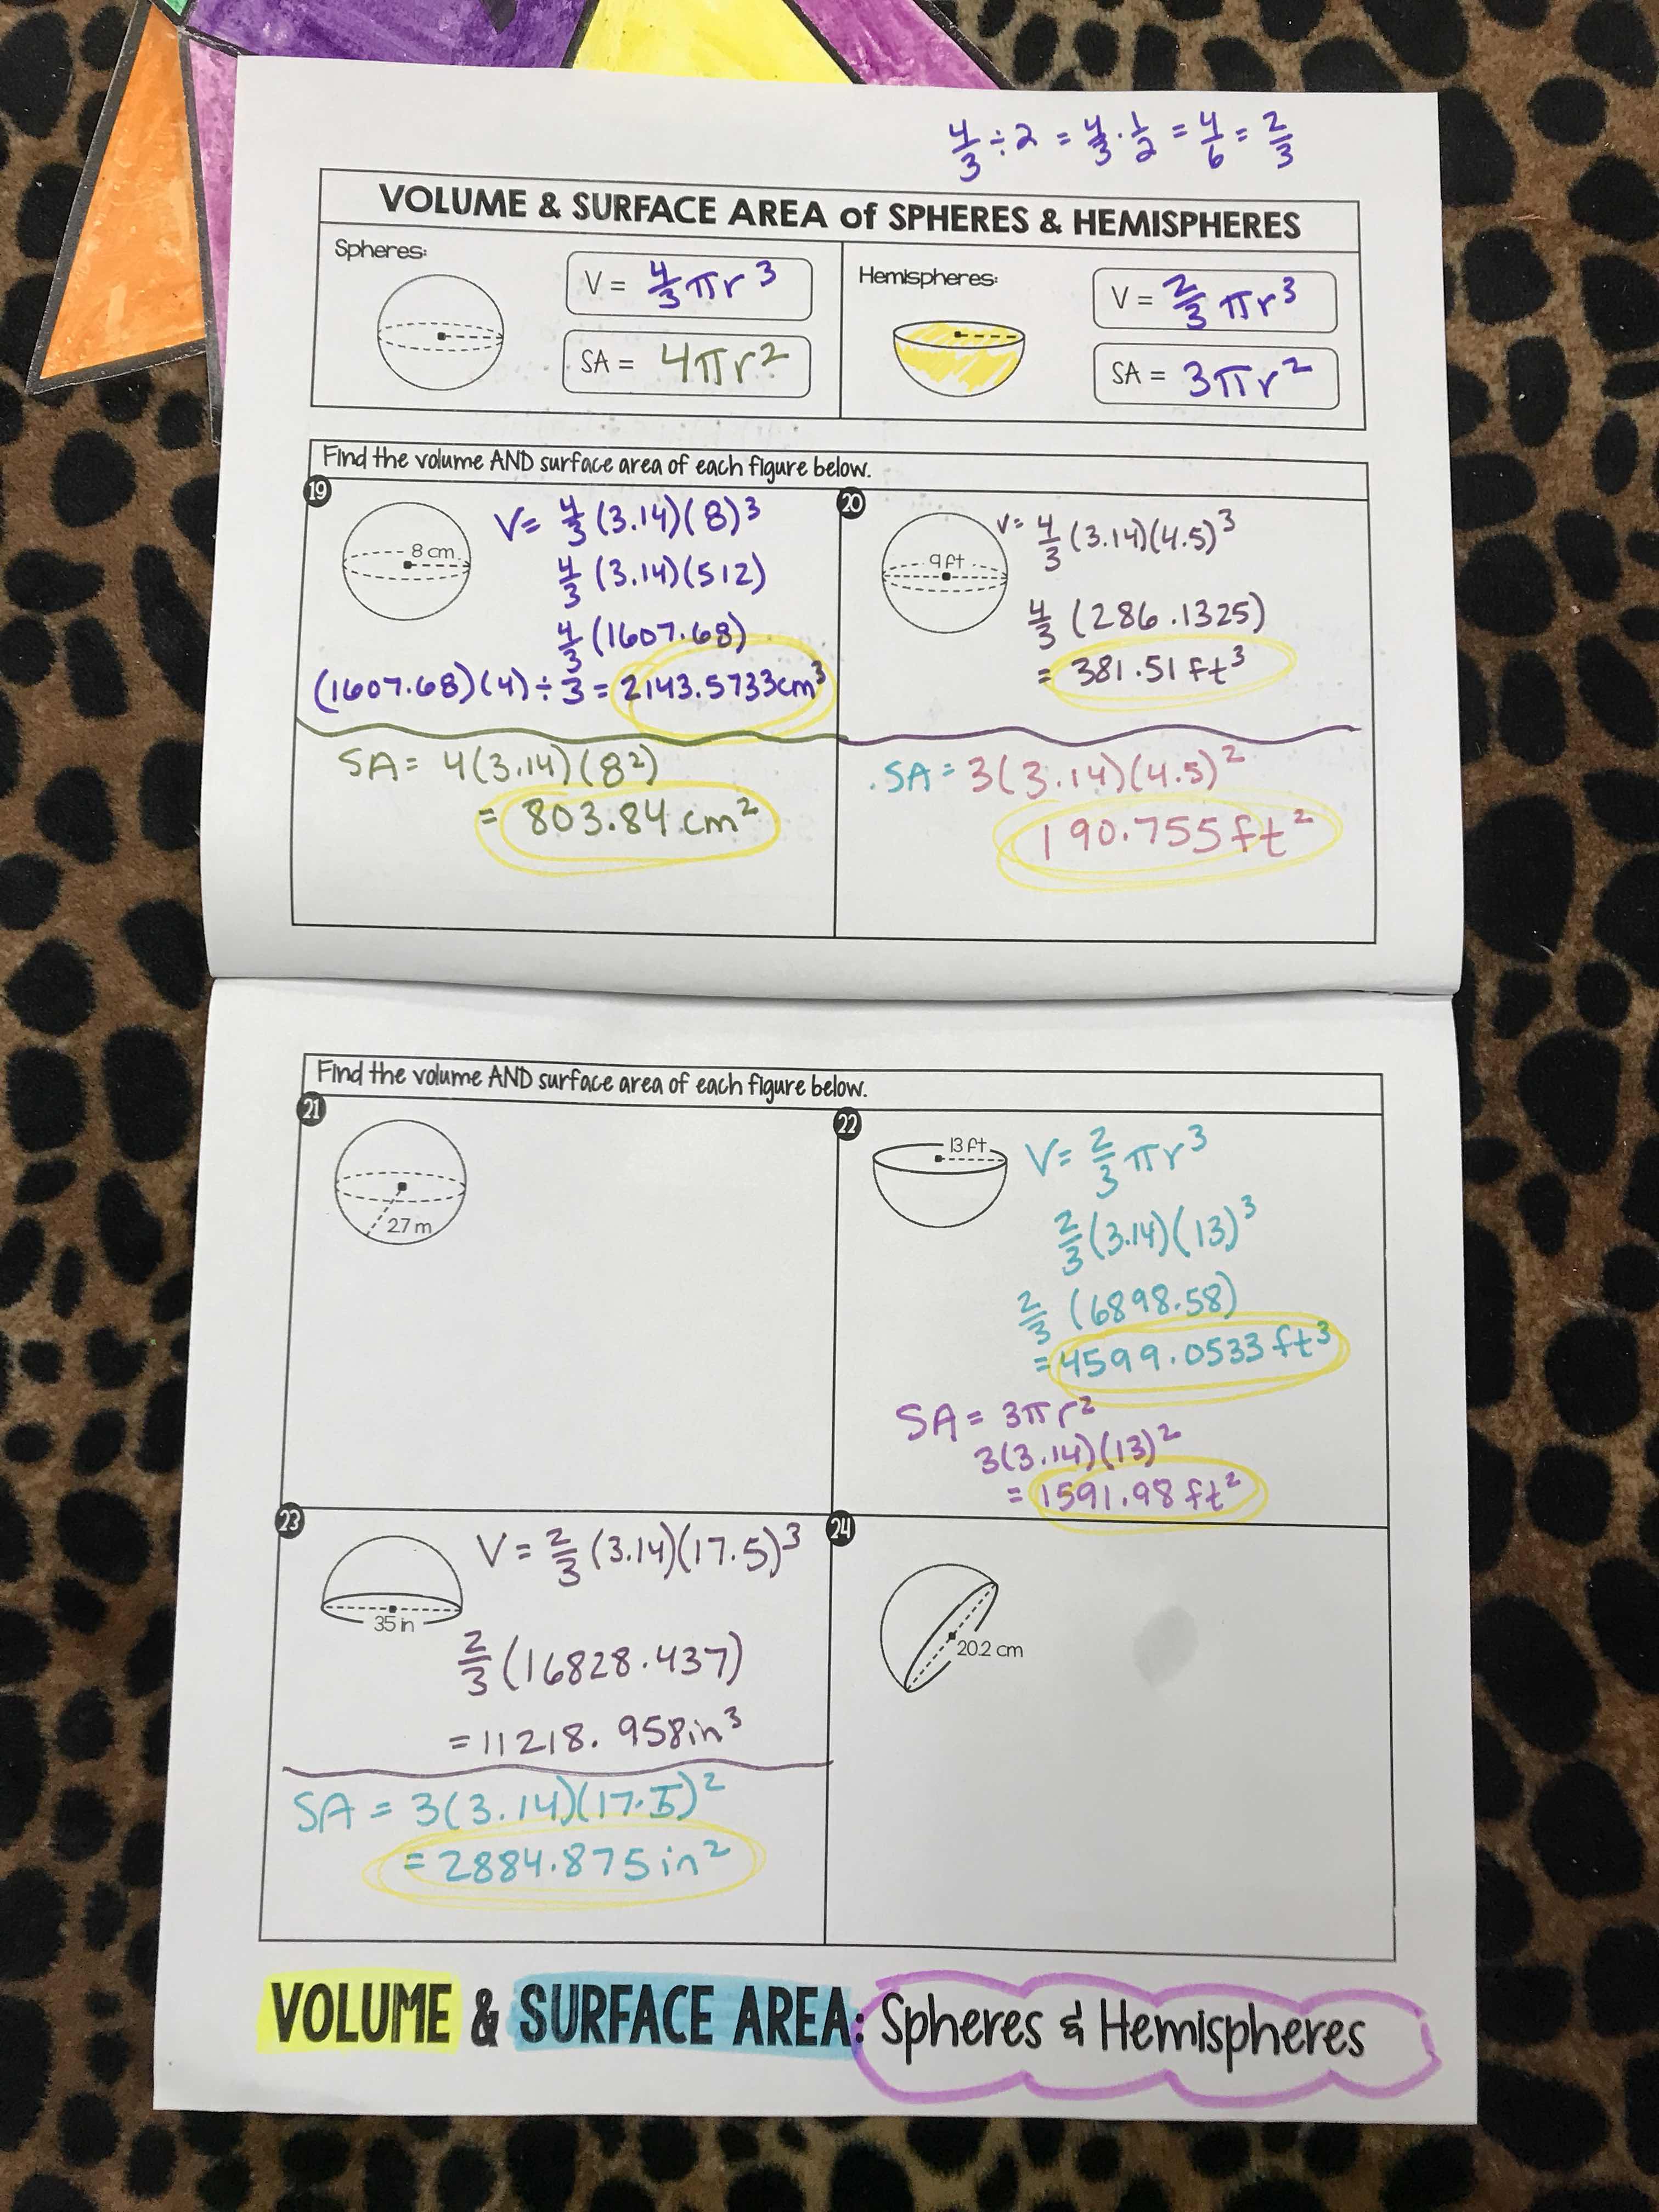 4/3 ÷ 2 = 4/3 · 1/2 = 4/6 = 2/3
VOLUME & SURFACE AREA of SPHERES & HEMISPHERES
Spheres:
V = 4/3 πr³
SA = 4πr²
Hemispheres:
V = 2/3 πr³
SA = 3πr²
Find the volume AND surface area of each figure below.
19
8 cm
V= 4/3 (3.14)(8)³
4/3 (3.14)(512)
4/3 (1607.68)
(1607.68)(4) ÷ 3 = 2143.5733cm³
SA= 4(3.14)(8²)
= 803.84 cm²
20
9 ft
V= 4/3 (3.14)(4.5)³
4/3 (286.1325)
= 381.51 ft³
SA = 3(3.14)(4.5)²
190.755 ft²
Find the volume AND surface area of each figure below.
21
2.7 m
22
13 ft
V= 2/3 πr³
2/3 (3.14)(13)³
2/3 (6898.58)
= 4599.0533 ft³
SA = 3πr²
3(3.14)(13)²
= 1591.98 ft²
23
35 in
V = 2/3 (3.14)(17.5)³
2/3 (16828.437)
= 11218.958in³
SA = 3(3.14)(17.5)²
= 2884.875 in²
24
20.2 cm
VOLUME & SURFACE AREA: Spheres & Hemispheres